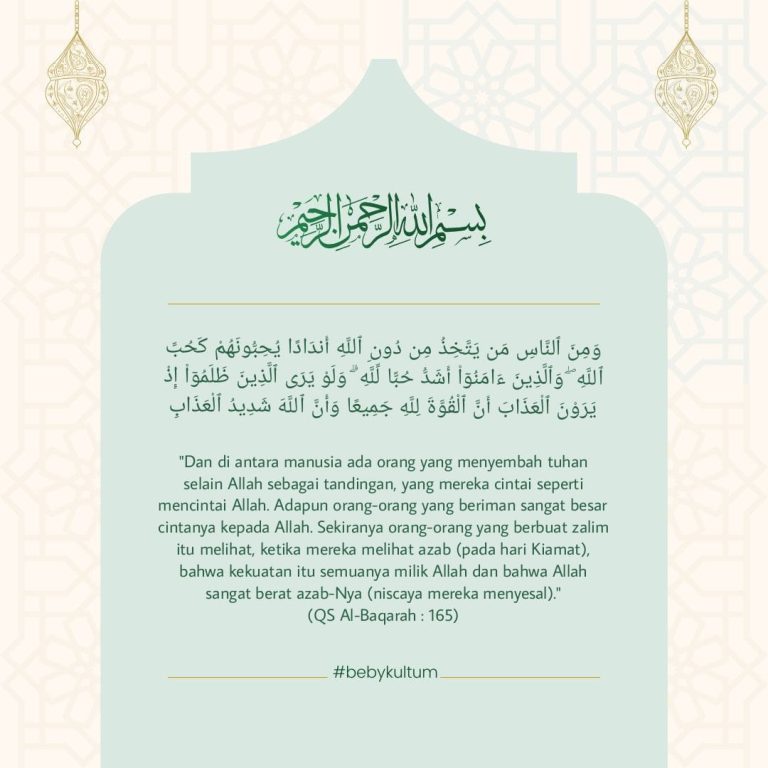 بِسْمِ اللهِ الرَّحْمَنِ الرَّحِيْمِ
وَمِنَ ٱلنَّاسِ مَن يَتَّخِذُ مِن دُونِ ٱللَّهِ أَندَادًا يُحِبُّونَهُمْ كَحُبِّ
ٱللَّهِ ۖ وَٱلَّذِينَ ءَامَنُوٓا۟ أَشَدُّ حُبًّا لِّلَّهِ ۗ وَلَوْ يَرَى ٱلَّذِينَ ظَلَمُوٓا۟ إِذْ
يَرَوْنَ ٱلْعَذَابَ أَنَّ ٱلْقُوَّةَ لِلَّهِ جَمِيعًا وَأَنَّ ٱللَّهَ شَدِيدُ ٱلْعَذَابِ
"Dan di antara manusia ada orang yang menyembah tuhan
selain Allah sebagai tandingan, yang mereka cintai seperti
mencintai Allah. Adapun orang-orang yang beriman sangat besar
cintanya kepada Allah. Sekiranya orang-orang yang berbuat zalim
itu melihat, ketika mereka melihat azab (pada hari Kiamat),
bahwa kekuatan itu semuanya milik Allah dan bahwa Allah
sangat berat azab-Nya (niscaya mereka menyesal)."
(QS Al-Baqarah : 165)
#bebykultum